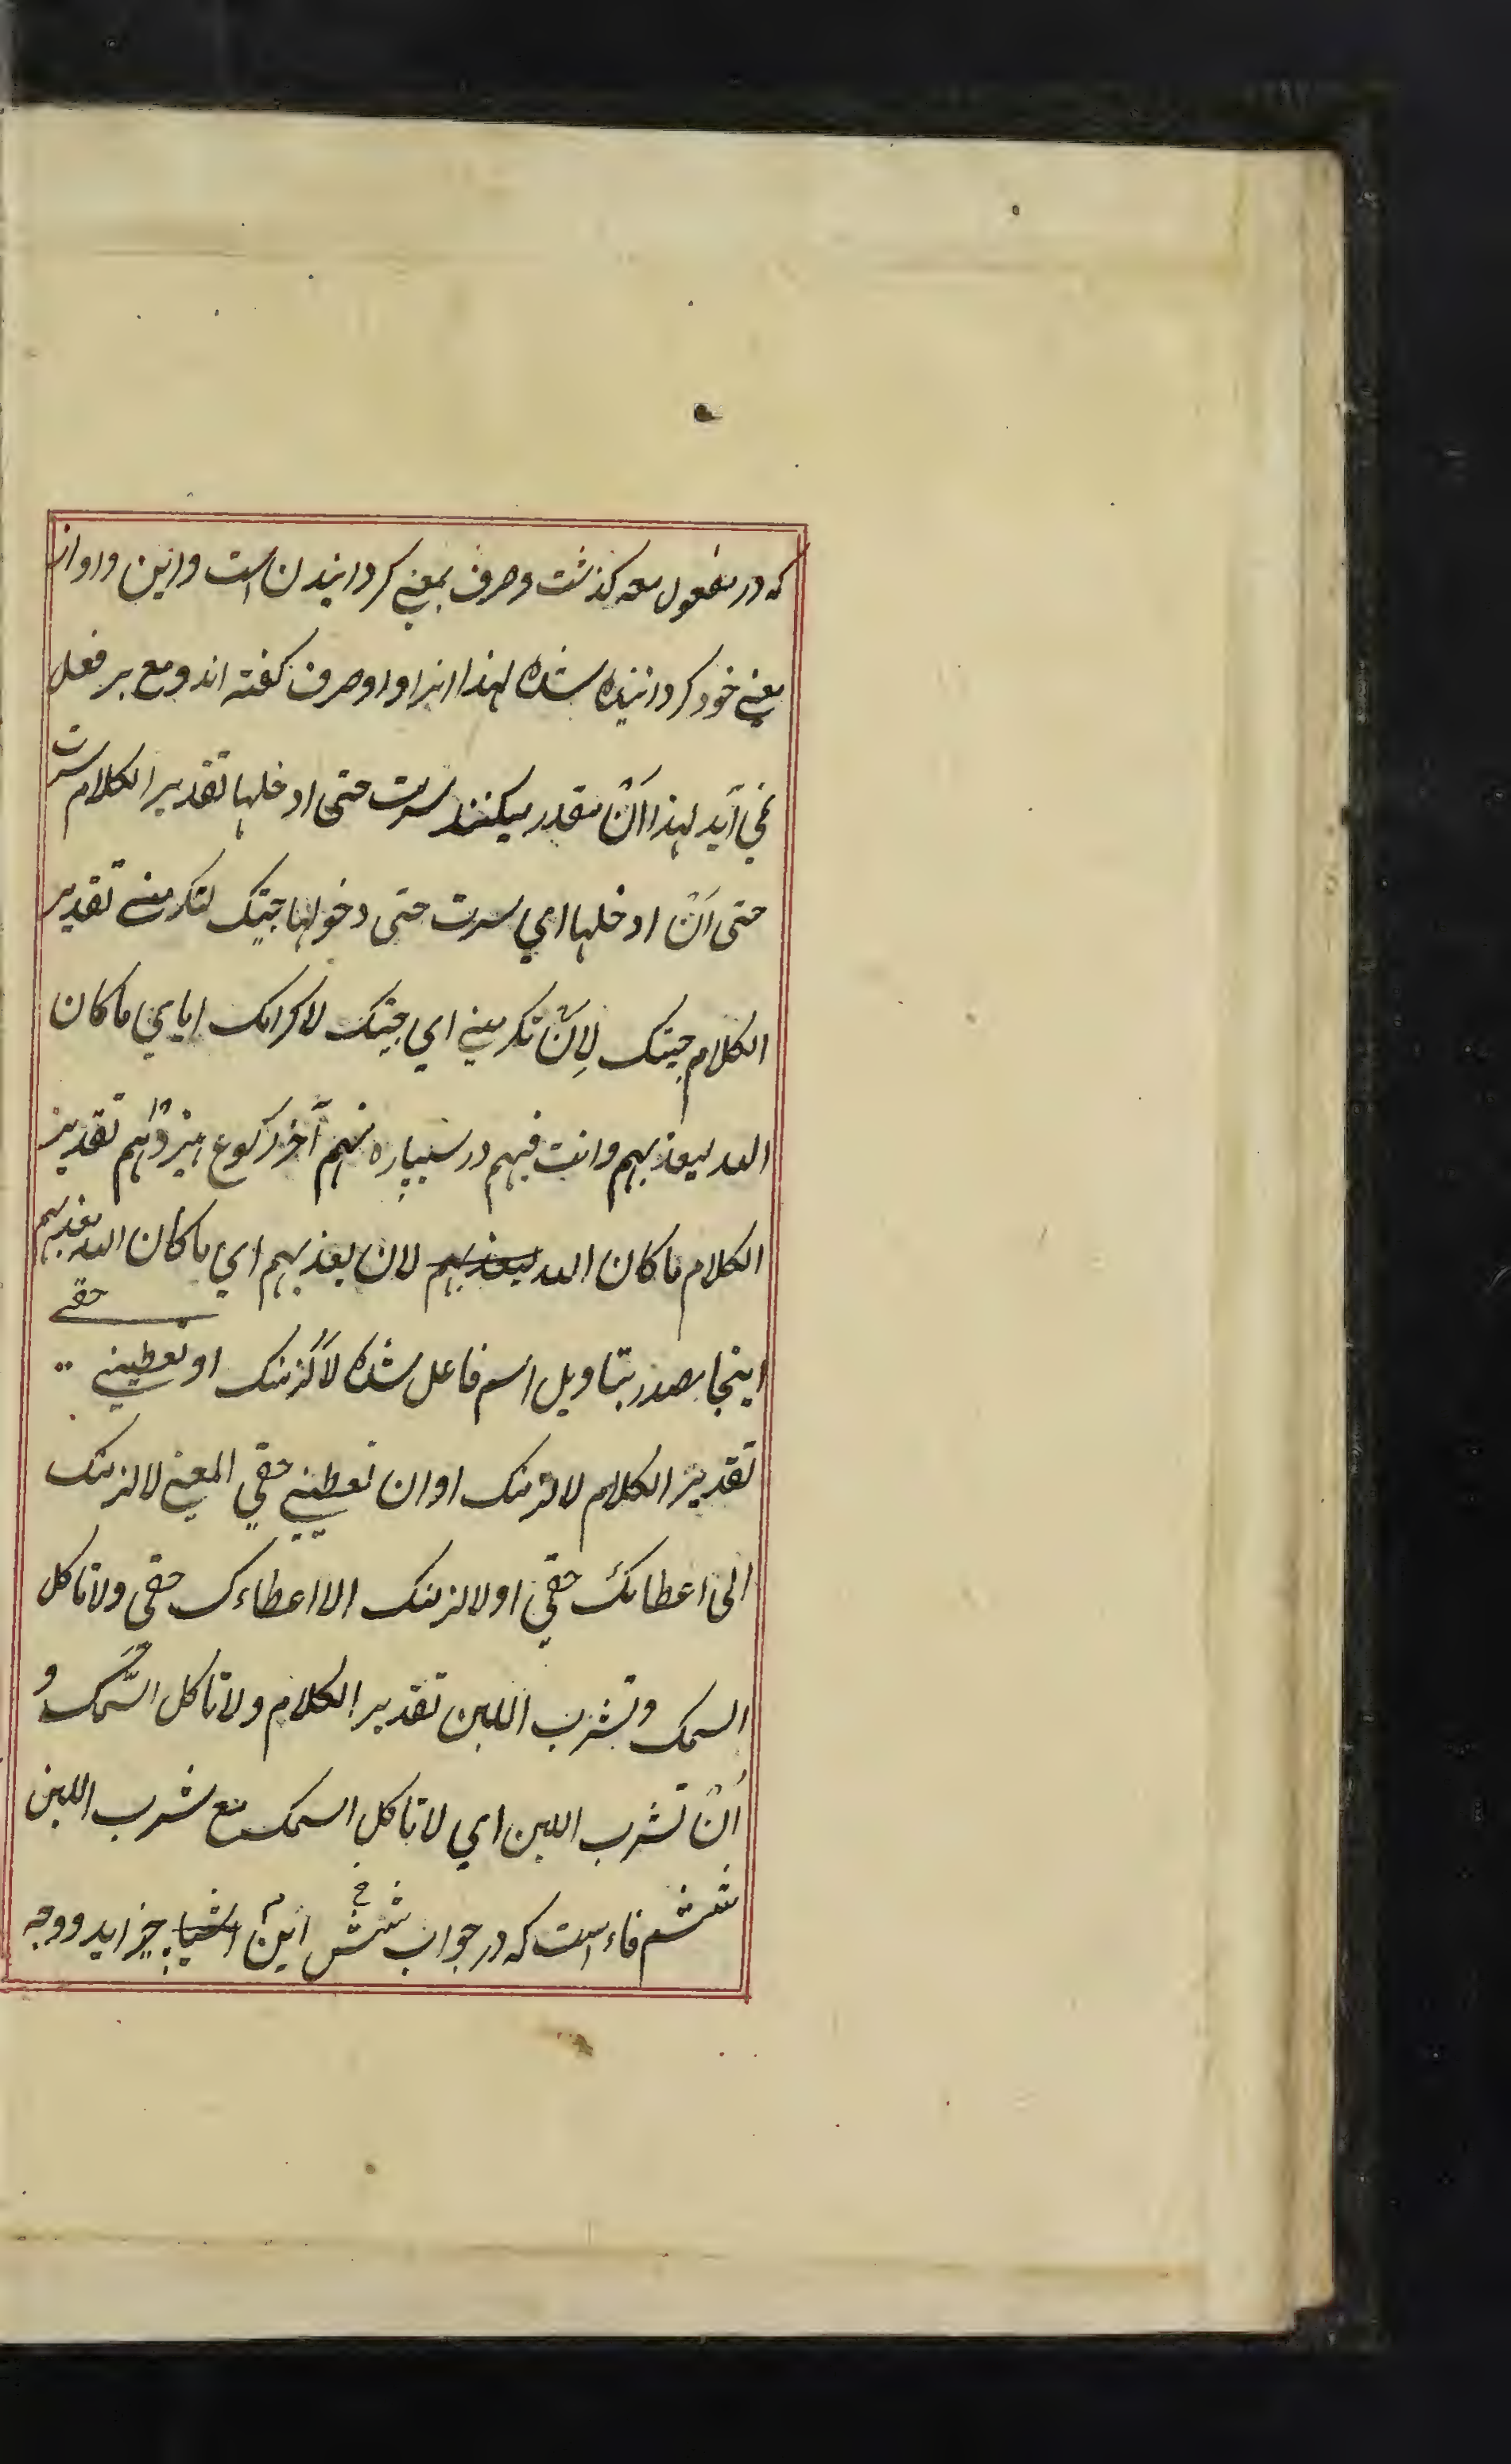 که در مفعول معه کذشت و صرف بمعنے کردانیدن است و این واو از
معنے خود کردانیده شده لهذا اینرا واو صرف کفته اند و مع بر فعل
نمی آید لهذا اَنْ مقدر میکنند سرت حتی ادخلها تقدیر الکلام سرت
حتی اَنْ ادخلها ای سرت حتی دخولها جیتک لتکرمنے تقدیر
الکلام جیتک لِاَنْ تکرمنے ای جیتک لاکرامک ایای ما کان
الله لیعذبهم و انت فیهم در سیپاره نهم آخر رکوع هیزدهم تقدیر
الکلام ما کان الله لیعذبهم لان یعذبهم ای ما کان الله یعذبهم
اینجا مصدر بتاویل اسم فاعل شده لَاَلْزمنک او تعطینے حقے
تقدیر الکلام لالزمنک او ان تعطینے حقی المعنے لالزمنک
الی اعطائک حقی او لالزمنک الا اعطاءک حقی و لا تاکل
السمک و تشرب اللبن تقدیر الکلام و لا تاکل السّمک و
اَنْ تشرب اللبن ای لا تاکل السمک مع شرب اللبن
ششم فاء است که در جواب شش این اشیا چیز اید و وجه